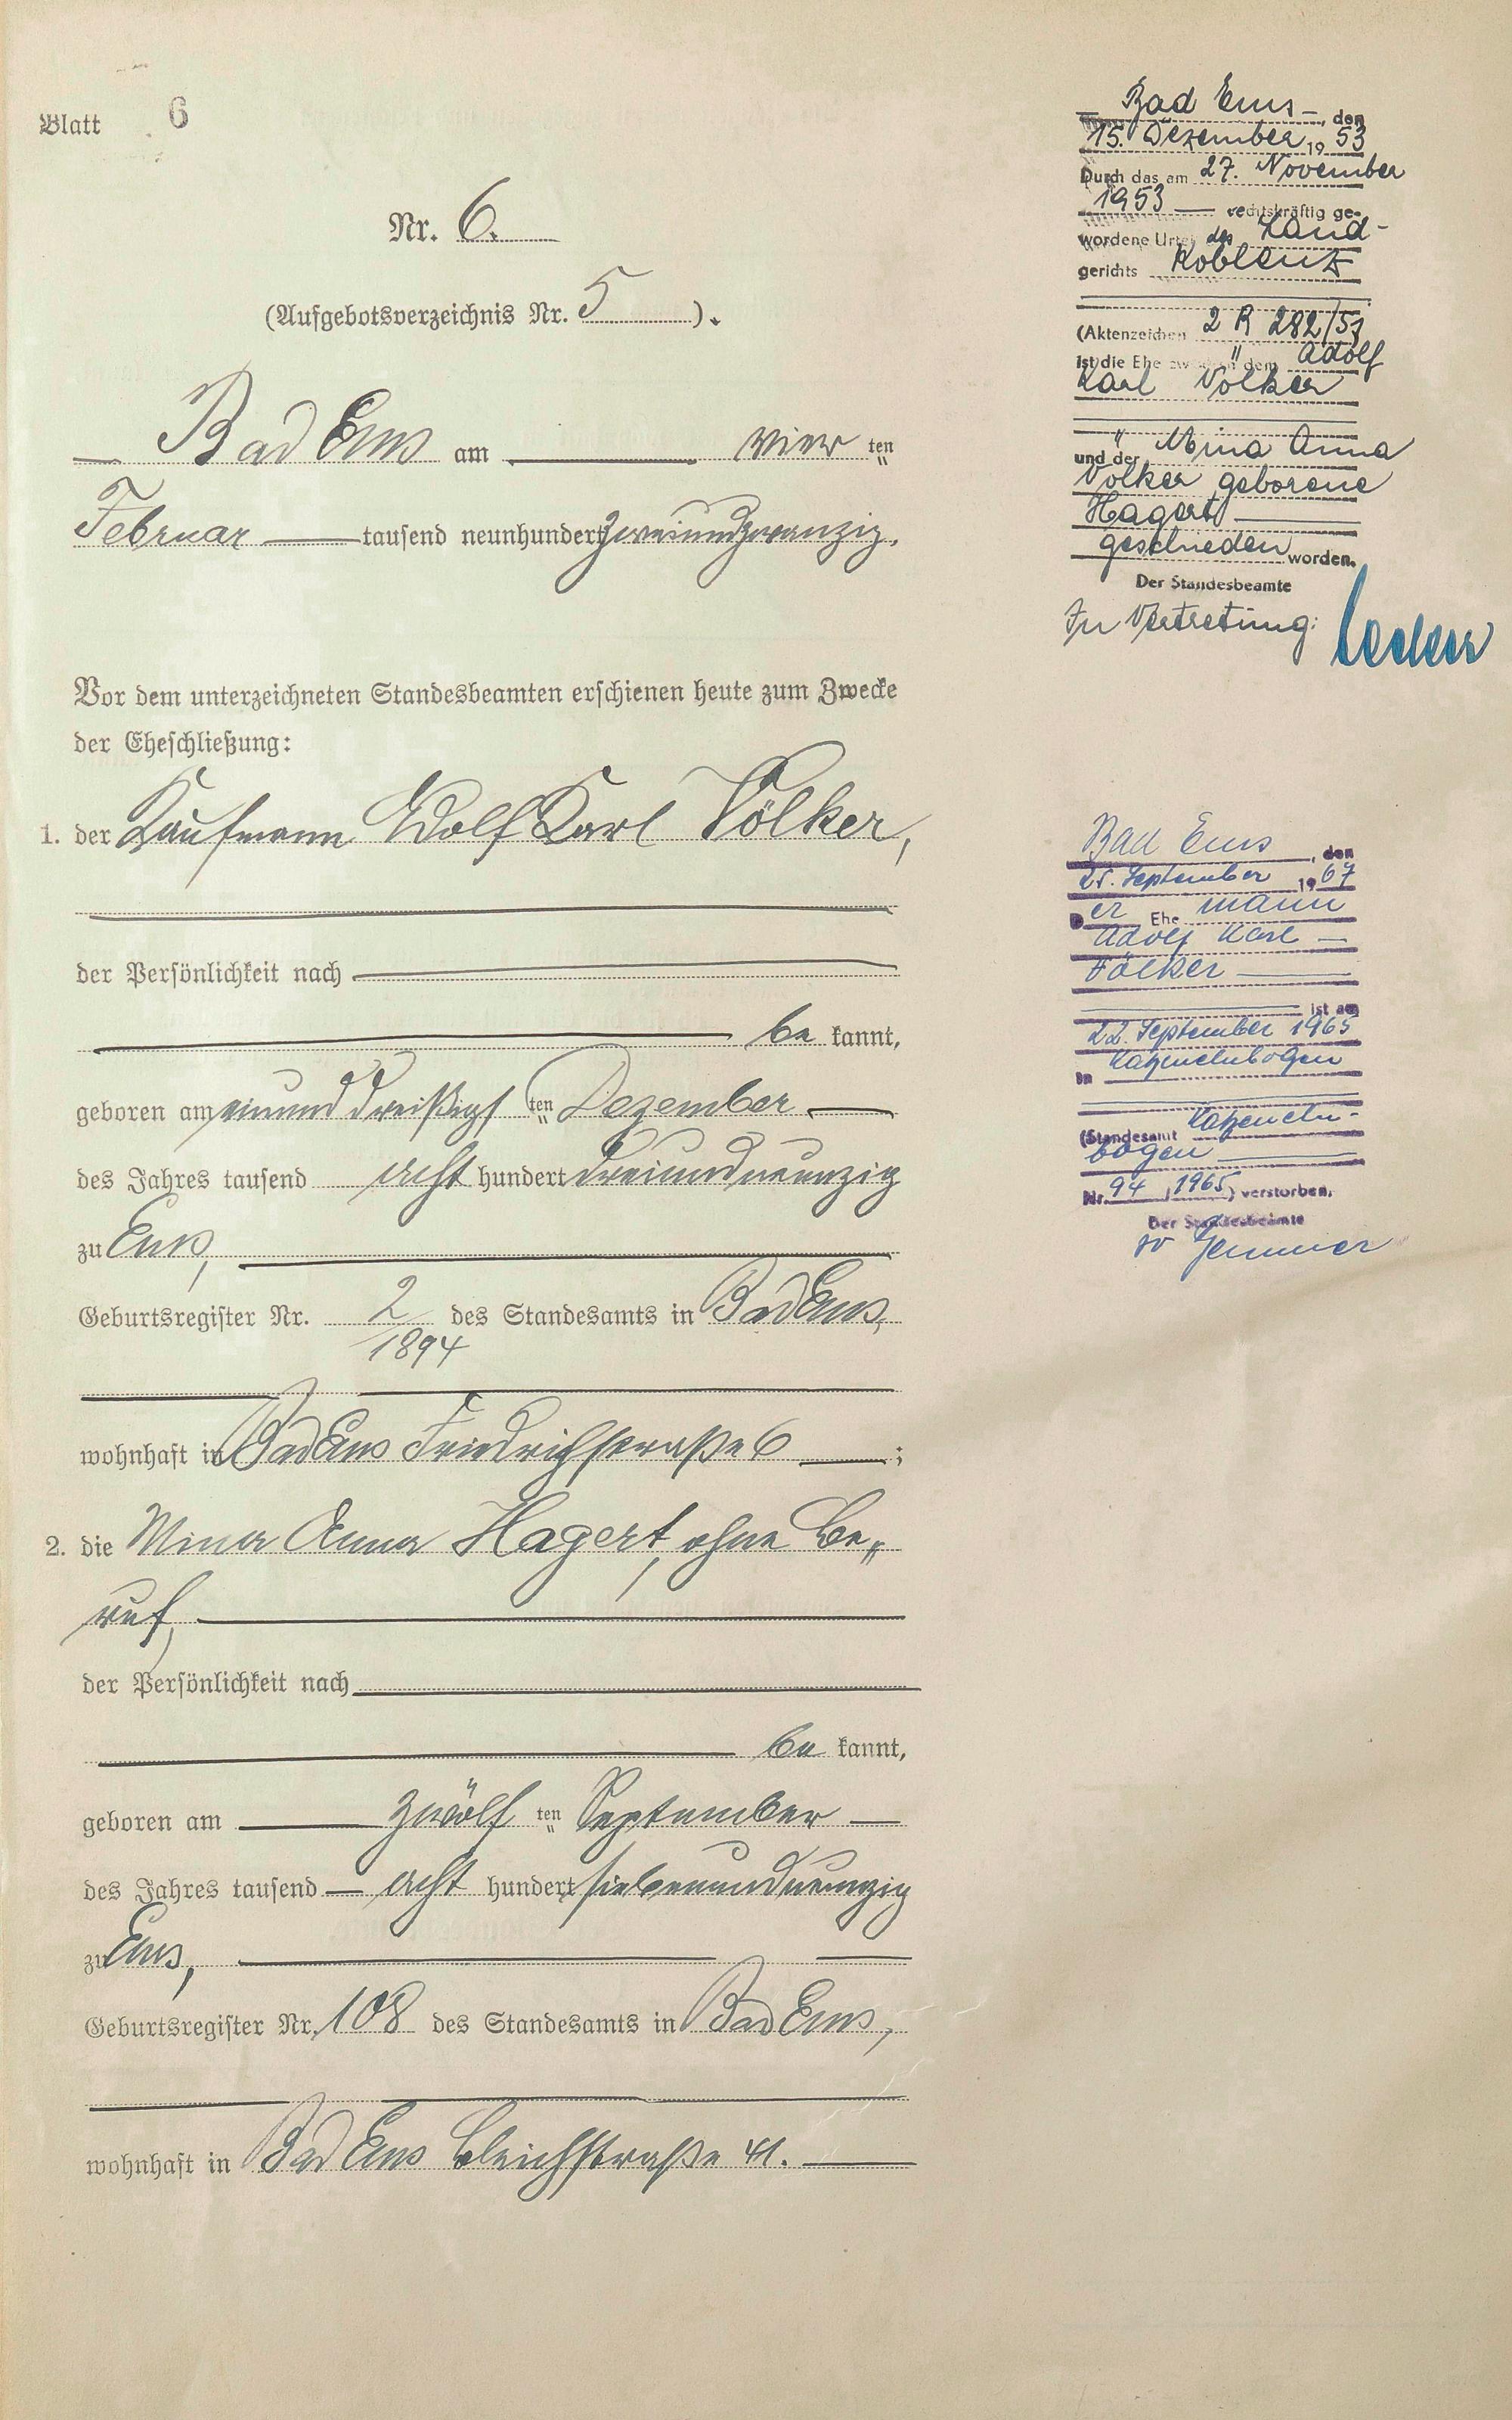 Blatt 6
Nr. 6.
(Aufgebotsverzeichnis Nr. 5).
Bad Ems am vier ten
Februar tausend neunhundert zweiundzwanzig.
Vor dem unterzeichneten Standesbeamten erschienen heute zum Zwecke
der Eheschließung:
1. der Kaufmann Adolf Karl Völker,
der Persönlichkeit nach
be kannt,
geboren am einunddreißigst ten Dezember
des Jahres tausend acht hundert dreiundneunzig
zu Ems,
Geburtsregister Nr. 2 des Standesamts in Bad Ems,
1894
wohnhaft in Bad Ems Friedrichstraße 6;
2. die Mina Anna Hagert, ohne Be„
ruf,
der Persönlichkeit nach
be kannt,
geboren am zwölf ten September
des Jahres tausend acht hundert siebenundneunzig
zu Ems,
Geburtsregister Nr. 108 des Standesamts in Bad Ems,
wohnhaft in Bad Ems Bleichstraße 41.
Bad Ems, den
15. Dezember 1953
Durch das am 27. November
1953 rechtskräftig ge-
wordene Urteil des Land-
gerichts Koblenz
(Aktenzeichen 2 R 282/53
ist die Ehe zwischen dem Adolf
Karl Völker
und der Mina Anna
Völker geborene
Hagert
geschieden worden.
Der Standesbeamte
In Vertretung:
Bad Ems, den
25. September 1967
Der Ehemann
Adolf Karl
Völker
ist am
22. September 1965
in Katzenelnbogen
(Standesamt Katzeneln-
bogen
Nr. 94/1965) verstorben.
Der Standesbeamte